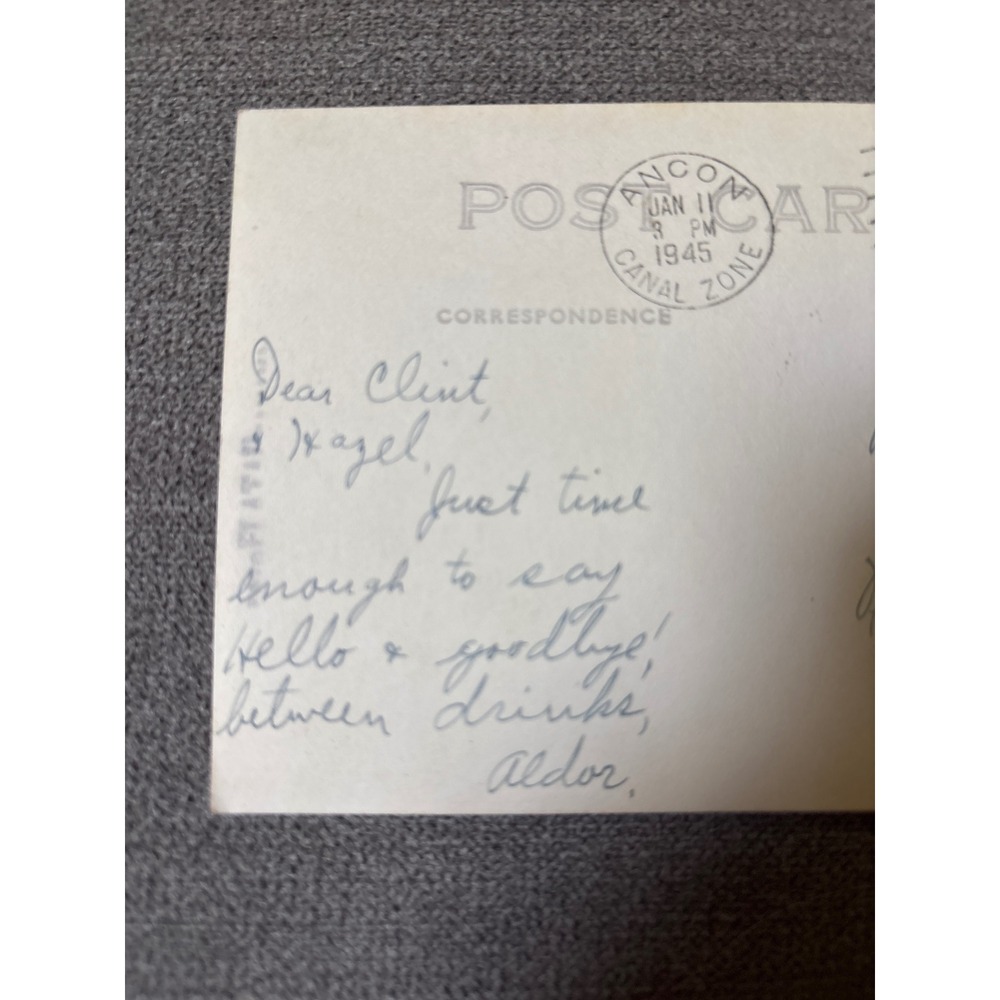 POST CAR
ANCON
JAN 11
3 PM
1945
CANAL ZONE
CORRESPONDENCE
Dear Clint,
& Hazel,
Just time
enough to say
Hello & goodbye!
between drinks,
Aldor.